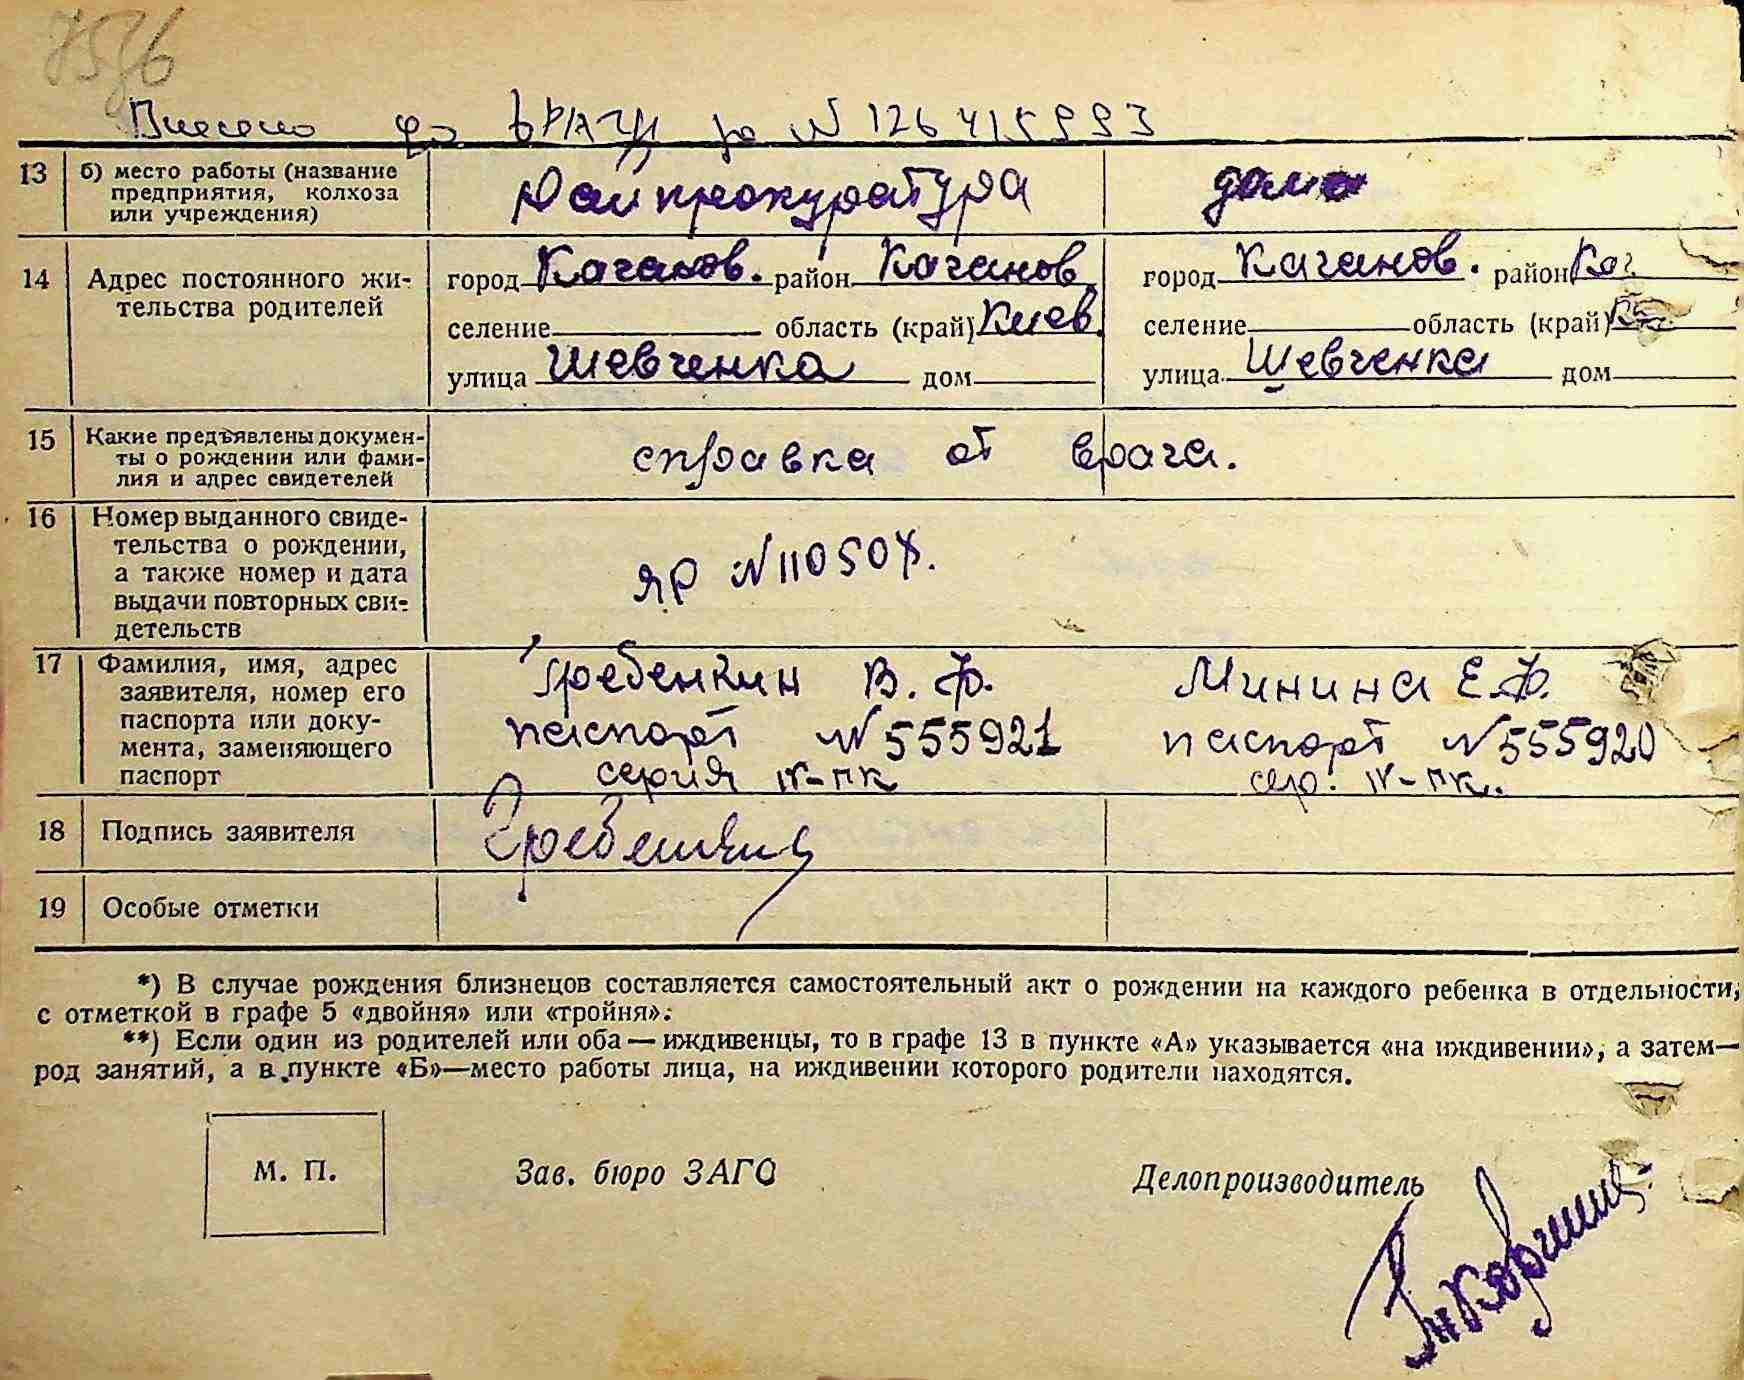 7576
Внесено до ДРАЦС за № 126415993
13 б) место работы (название предприятия, колхоза или учреждения) Райпрокуратура дома
14 Адрес постоянного жительства родителей
город Каганов. район Каганов город Каганов. район Каг.
селение область (край) Киев. селение область (край)
улица Шевченка дом улица Шевченка дом
15 Какие предъявлены документы о рождении или фамилия и адрес свидетелей справка от врача.
16 Номер выданного свидетельства о рождении, а также номер и дата выдачи повторных свидетельств ЯР №110508.
17 Фамилия, имя, адрес заявителя, номер его паспорта или документа, заменяющего паспорт
Гребенкин В. Ф. Минина Е.Ф.
паспорт №555921 паспорт №555920
серия IV-ПК сер. IV-ПК.
18 Подпись заявителя Гребенкин
19 Особые отметки
*) В случае рождения близнецов составляется самостоятельный акт о рождении на каждого ребенка в отдельности,
с отметкой в графе 5 «двойня» или «тройня».
**) Если один из родителей или оба — иждивенцы, то в графе 13 в пункте «А» указывается «на иждивении», а затем—
род занятий, а в пункте «Б»—место работы лица, на иждивении которого родители находятся.
М. П. Зав. бюро ЗАГС Делопроизводитель